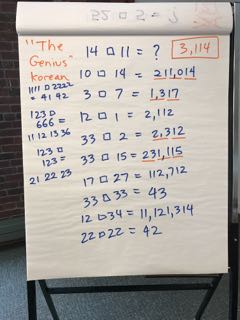 "The
Genius"
Korean
1111 □ 2222
= 41 42
123 □
666 =
11 12 13 36
123 □
123 =
21 22 23
14 □ 11 = ? 3,114
10 □ 14 = 211,014
3 □ 7 = 1,317
12 □ 1 = 2,112
33 □ 2 = 2,312
33 □ 15 = 231,115
17 □ 27 = 112,712
33 □ 33 = 43
12 □ 34 = 11,121,314
22 □ 22 = 42